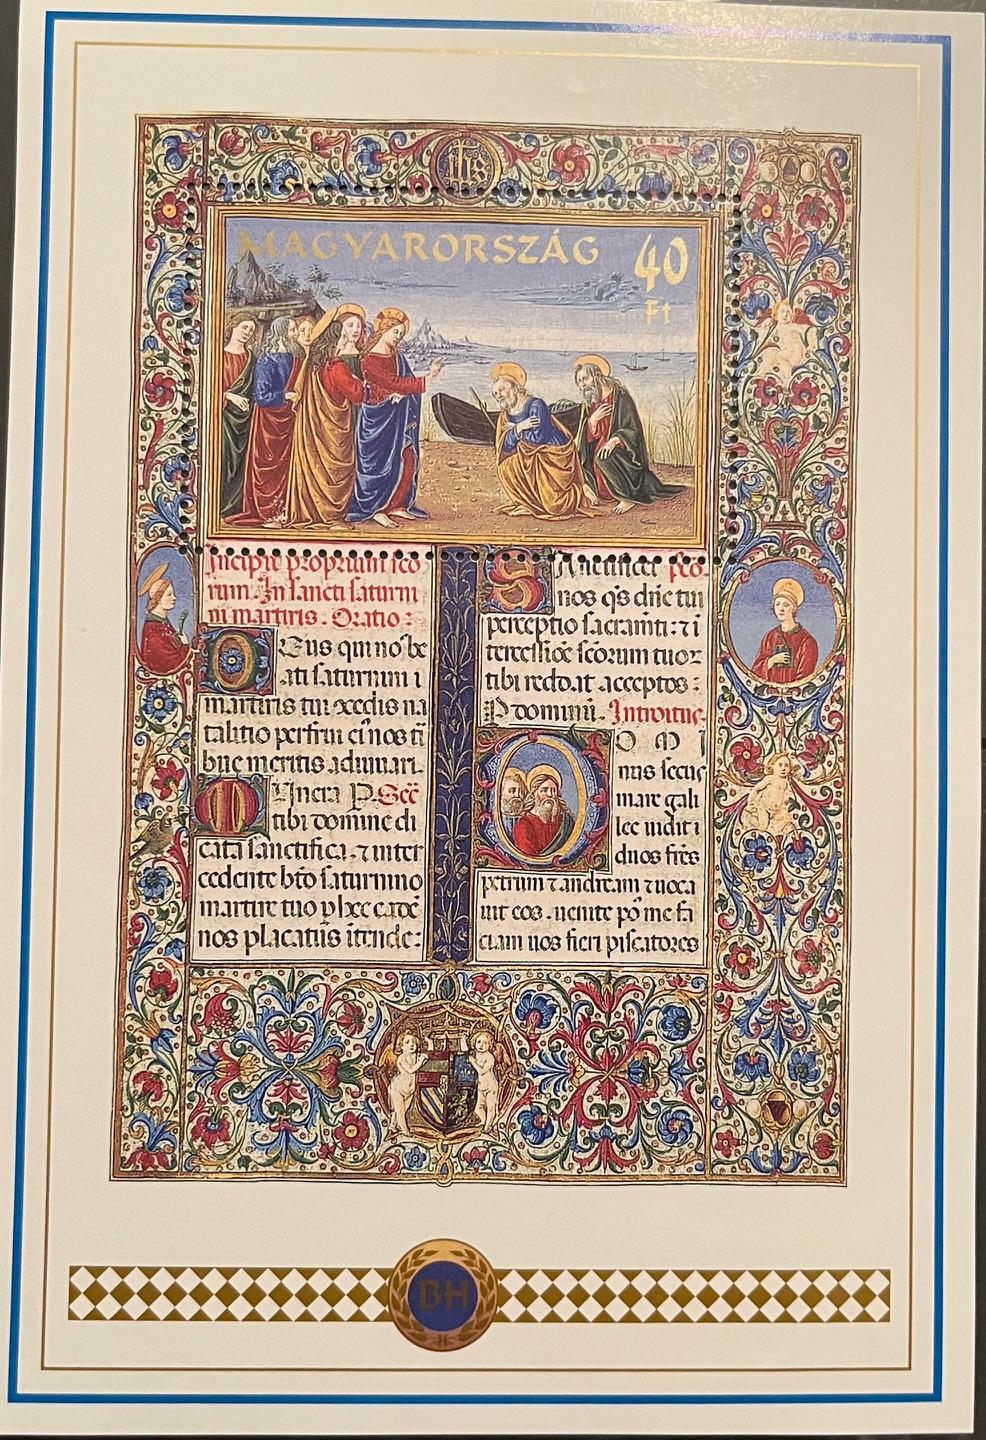 ihs
MAGYARORSZÁG 40
Ft
Incipit proprium sco
rum. In sancti saturni
ni martiris. Oratio:
DEus qui nos be
ati saturnini
martiris tui
talitio perfrui
meritis adiuuari.
MUnera
tibi domine di
cata sanctifica. ⁊ inter
cedente bto saturnino
martire tuo p hec eadē
nos placatus itende:
SAnctificet
nos qs dne tui
perceptio
scorum tuoꝝ
tibi reddat acceptos:
P dominū. Introitus.
DO M I
nus secus
mare gali
lee uidit
duos fres
petrum ⁊ andream ⁊ uoca
uit eos. uenite po me fa
ciam uos fieri piscatores
BH